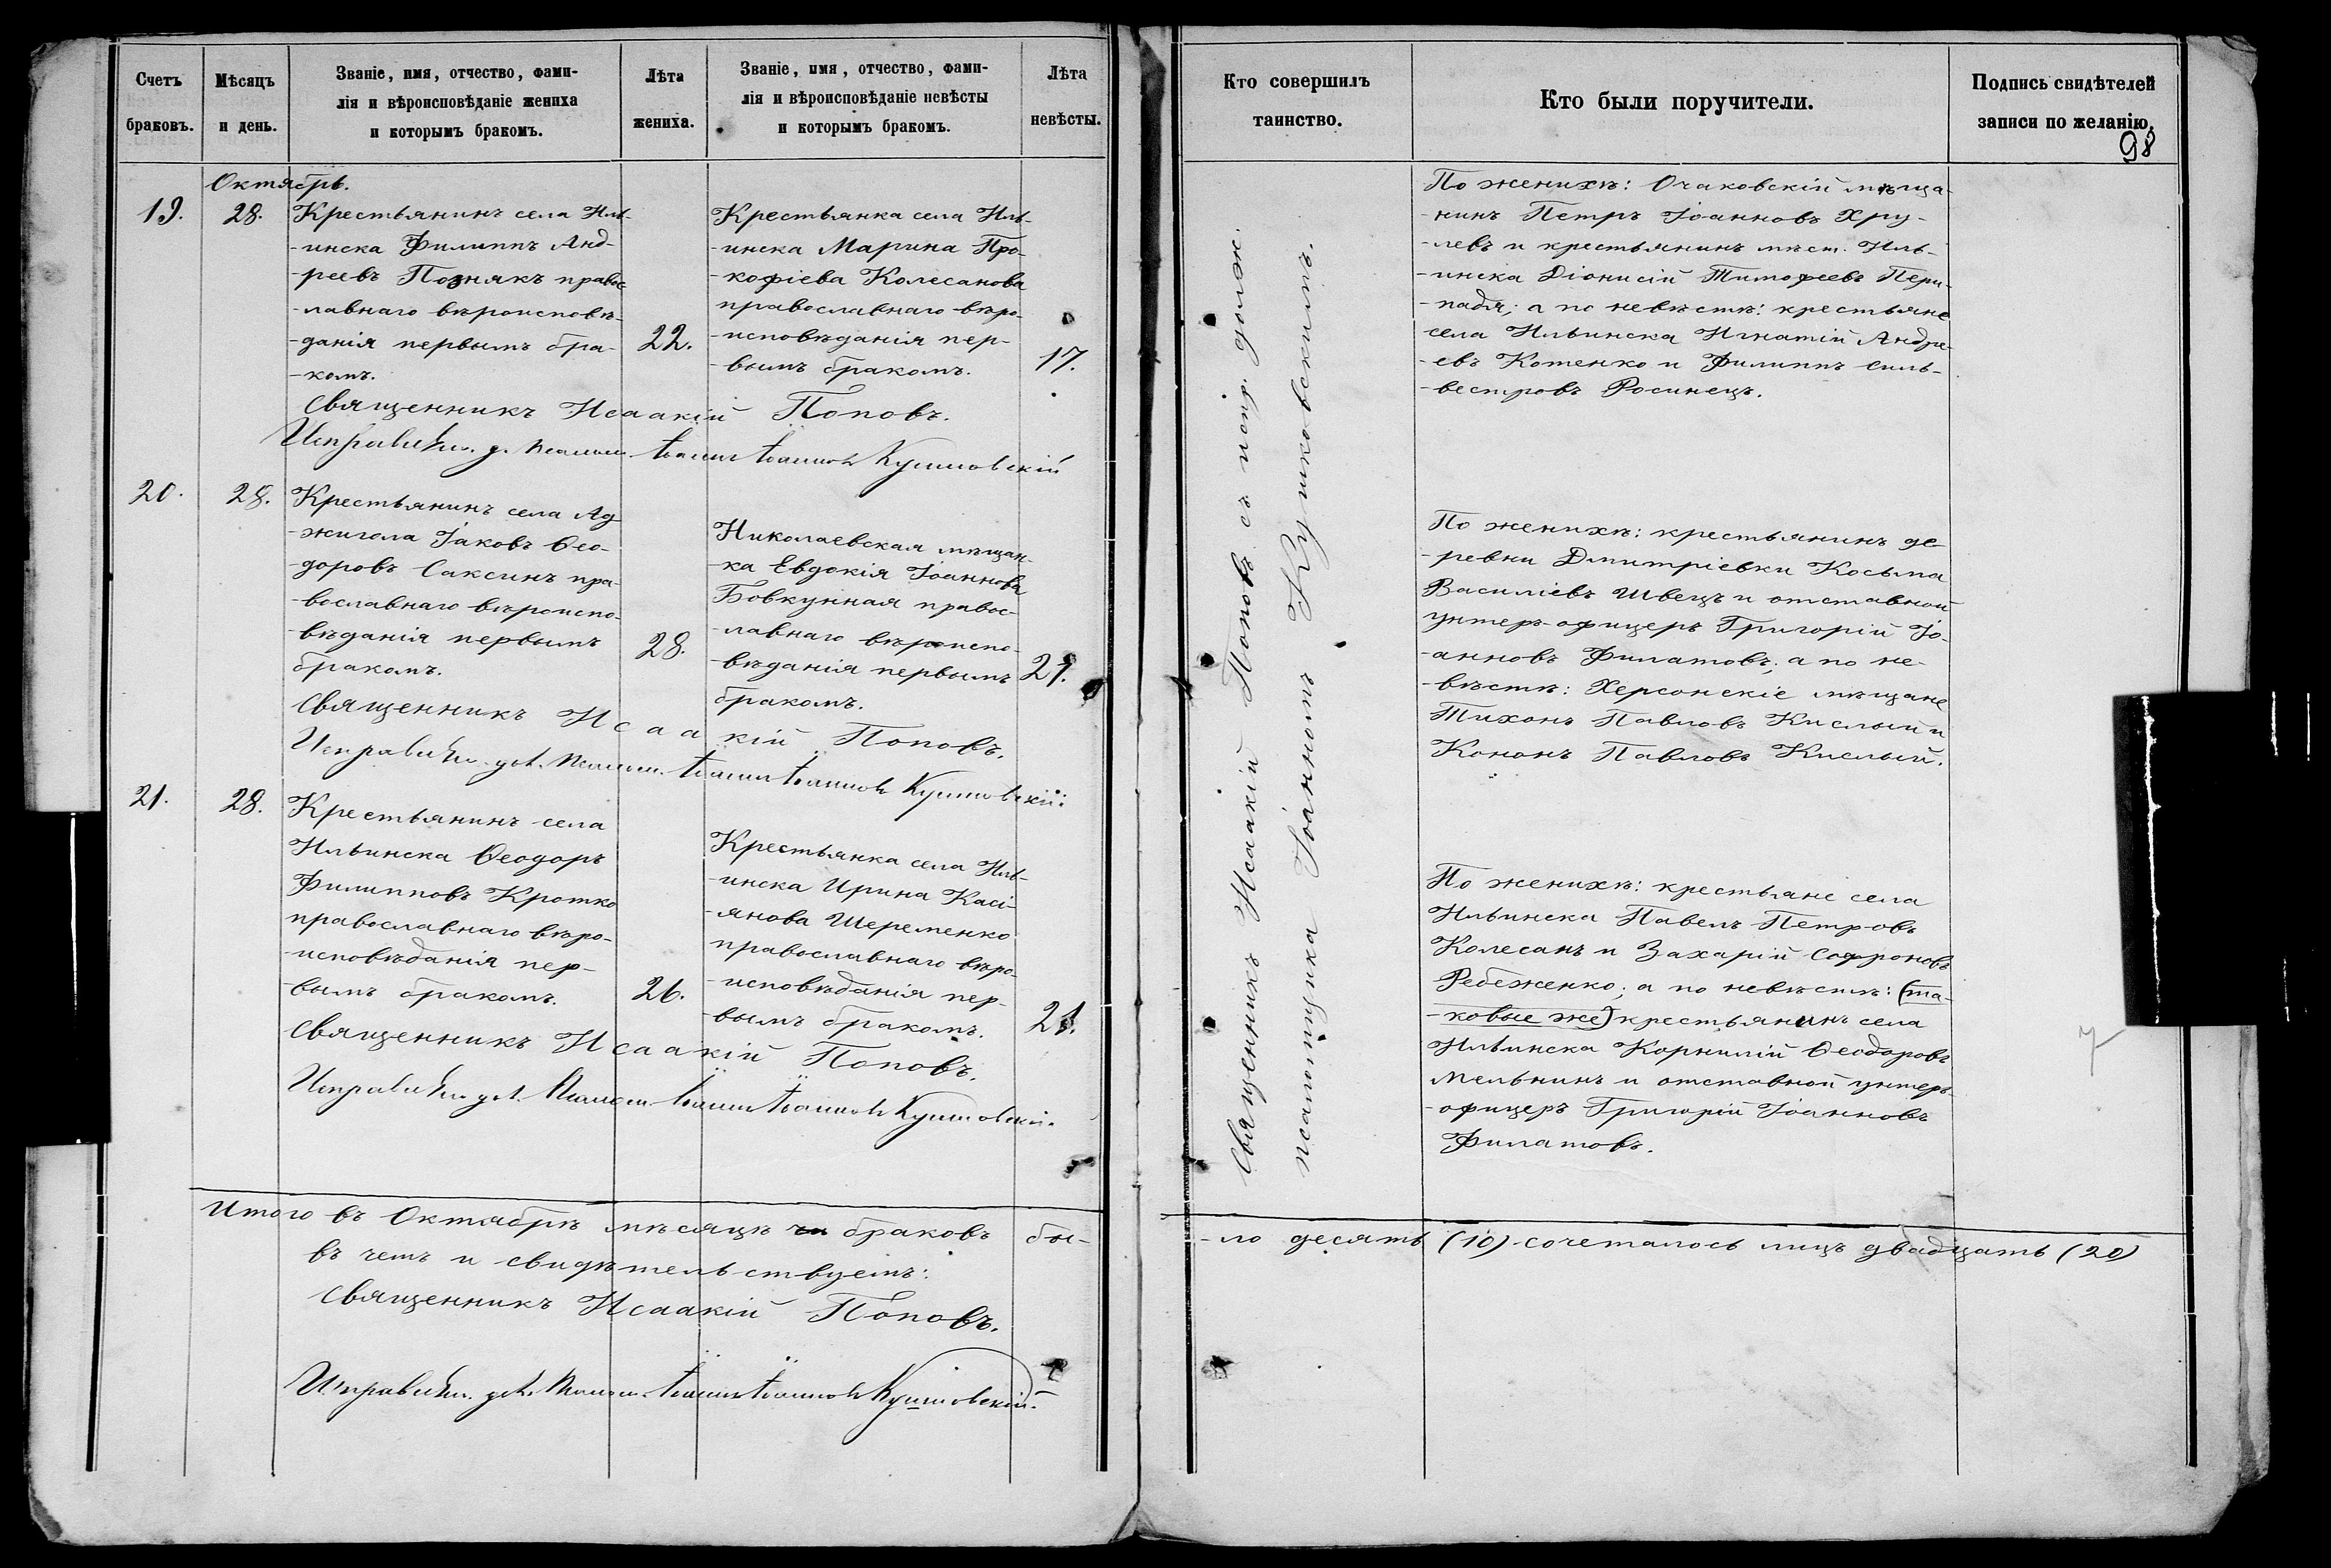 Счетъ
браковъ.
Мѣсяцъ
и день.
Званіе, имя, отчество, фами-
лія и вѣроисповѣданіе жениха
и которымъ бракомъ.
Лѣта
жениха.
Званіе, имя, отчество, фами-
лія и вѣроисповѣданіе невѣсты
и которымъ бракомъ.
Лѣта
невѣсты.
Октябрь.
19.
28.
Крестьянинъ села Иль-
-инска Филиппъ Анд-
-реевъ Познякъ правос
-лавнаго вѣроисповѣ-
-данія первымъ бра-
-комъ.
22.
Крестьянка села Иль-
-инска Марина Про-
-кофіева Колесанова
православнаго вѣро-
-исповѣданія пер-
-вымъ бракомъ.
17.
Священникъ Исаакій Поповъ.
Іоаннъ Іоанновъ Кушковскій
20.
28.
Крестьянинъ села Ад
-жигола Іаковъ Ѳео-
-доровъ Саксинъ пра-
-вославнаго вѣроиспо-
-вѣданія первымъ
бракомъ.
28.
Николаевская мѣщан-
-ка Евдокія Іоаннова
Бовкунная правос-
-лавнаго вѣроиспо-
-вѣданія первымъ
бракомъ.
21.
Священникъ Исаакій Поповъ.
Іоаннъ Іоанновъ Кушковскій
21.
28.
Крестьянинъ села
Ильинска Ѳеодоръ
Филипповъ Кротко
православнаго вѣро-
-исповѣданія пер-
-вымъ бракомъ.
26.
Крестьянка села Иль-
-инска Ирина Касі-
-янова Шеременко
православнаго вѣро-
-исповѣданія пер-
-вымъ бракомъ.
21.
Священникъ Исаакій Поповъ.
Іоаннъ Іоанновъ Кушковскій.
Итого въ Октябрѣ мѣсяцѣ браковъ бы-
въ чемъ и свидѣтельствуемъ:
Священникъ Исаакій Поповъ.
Іоаннъ Іоанновъ Кушковскій.
Кто совершилъ
таинство.
Кто были поручители.
Подпись свидѣтелей
записи по желанію.
98
Священникъ Исаакій Поповъ съ испр. долж.
псаломщика Іоанномъ Кушковскимъ.
По женихѣ: Очаковскій мѣща-
-нинъ Петръ Іоанновъ Хру-
-левъ и крестьянинъ мѣст. Иль-
-инска Діонисій Тимофеевъ Пери-
-падя; а по невѣстѣ: крестьяне
села Ильинска Игнатій Андре-
-евъ Котенко и Филиппъ Силь-
-вестровъ Росинецъ.
По женихѣ: крестьянинъ де
-ревни Дмитріевки Косьма
Василіевъ Швецъ и отставной
унтеръ-офицеръ Григорій Іо-
-анновъ Филатовъ; а по не-
-вѣстѣ: Херсонскіе мѣщане
Тихонъ Павловъ Кислый и
Кононъ Павловъ Кислый.
По женихѣ: крестьяне села
Ильинска Павелъ Петровъ
Колесанъ и Захарій Софроновъ
Ребеженко; а по невѣстѣ: (та-
-ковые же) крестьянинъ села
Ильинска Корнилій Ѳеодоровъ
Мельнинъ и отставной унтеръ-
-офицеръ Григорій Іоанновъ
Филатовъ.
-ло десять (10) сочеталось лицъ двадцать (20)